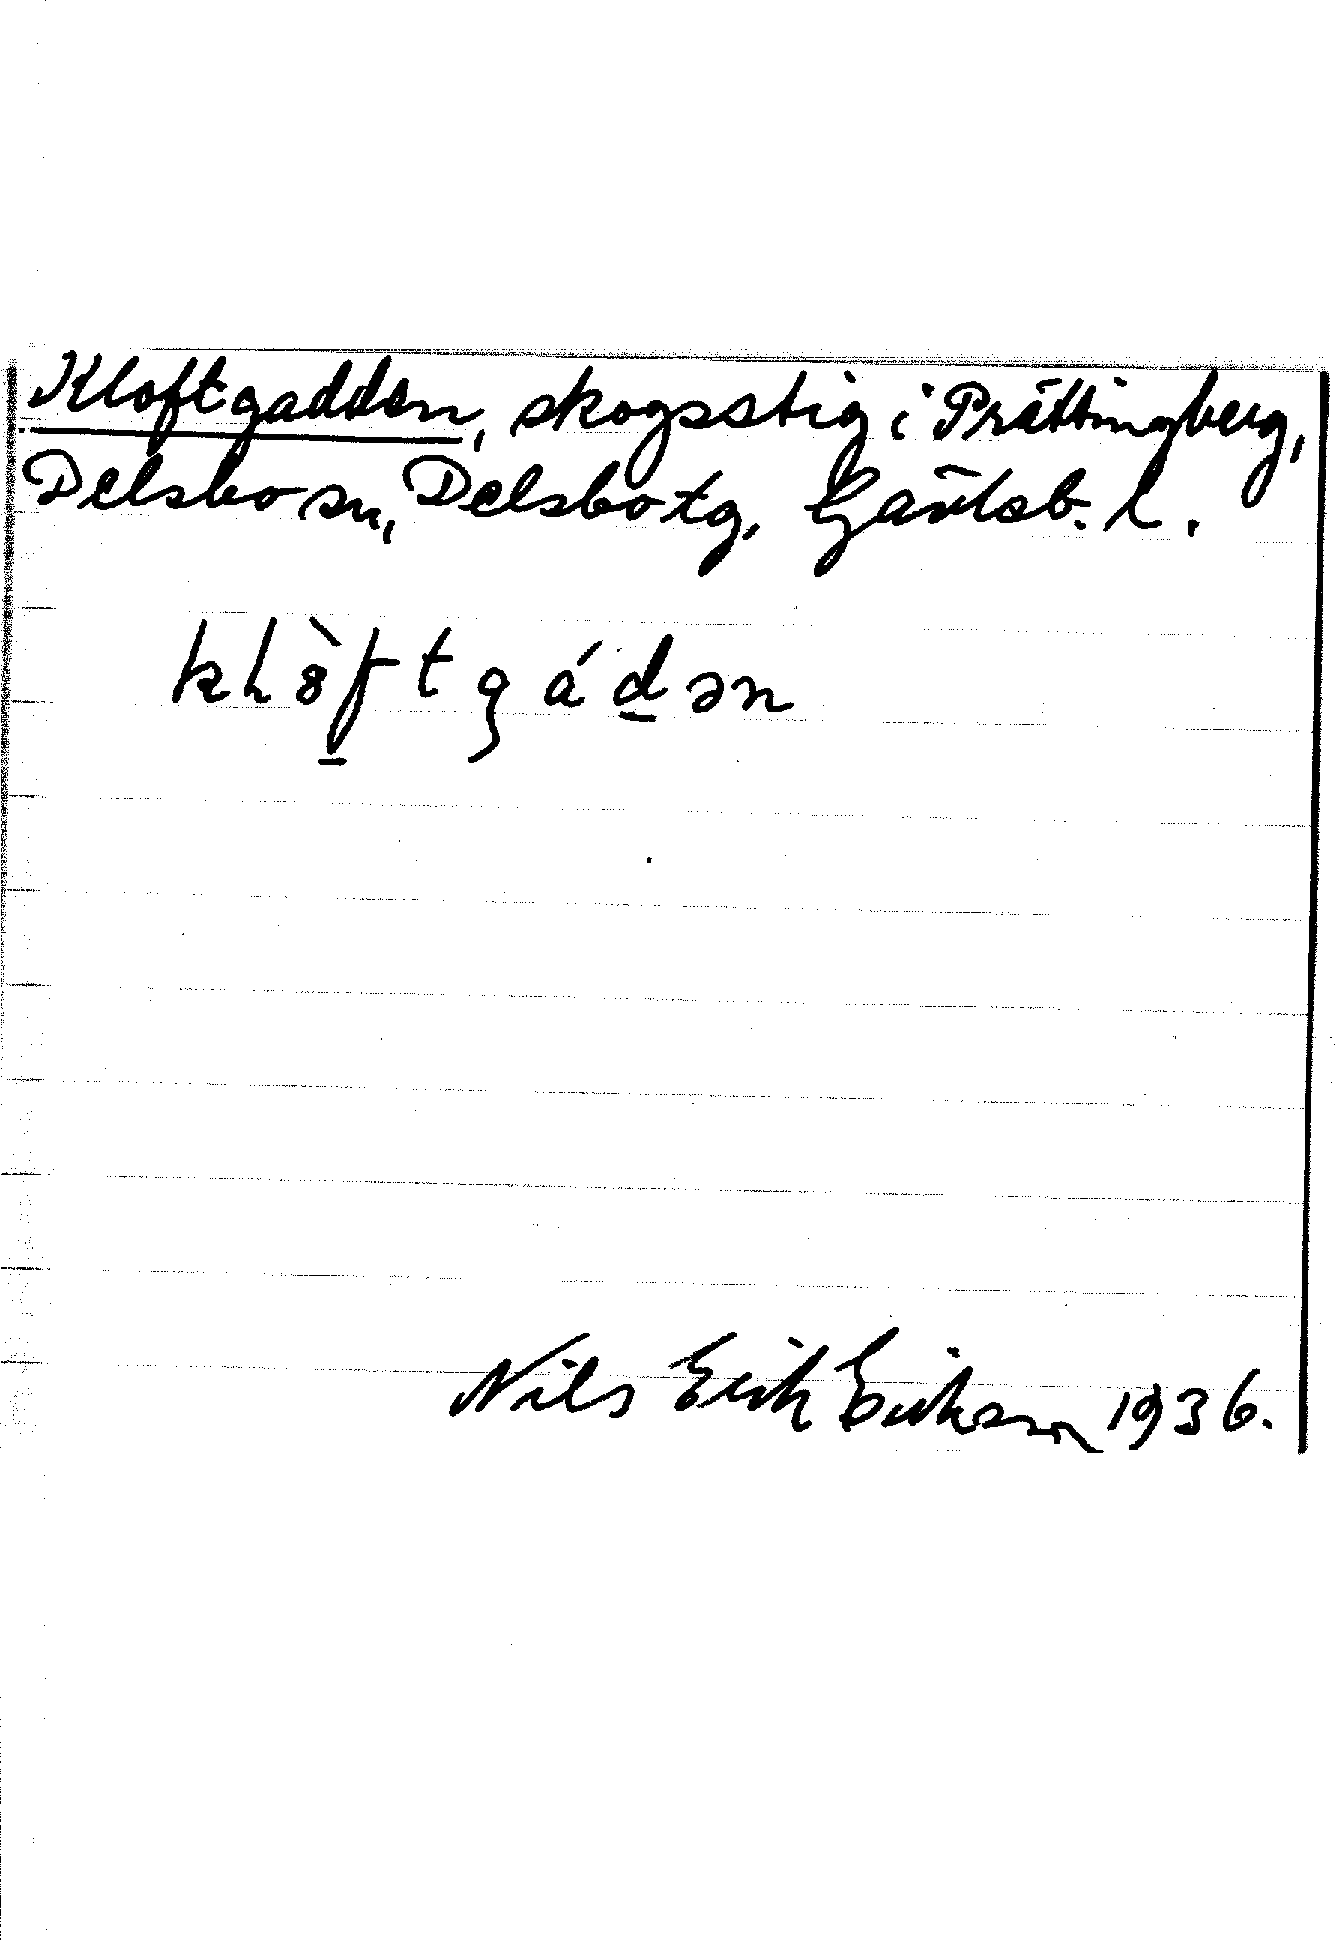 Kloftgadden, skogsstig i Prättingberg,
Delsbo sn, Delsbo tg, Gävleb. l.
klȯ̀f̱tgáḏən
Nils Erik Eriksson 1936.